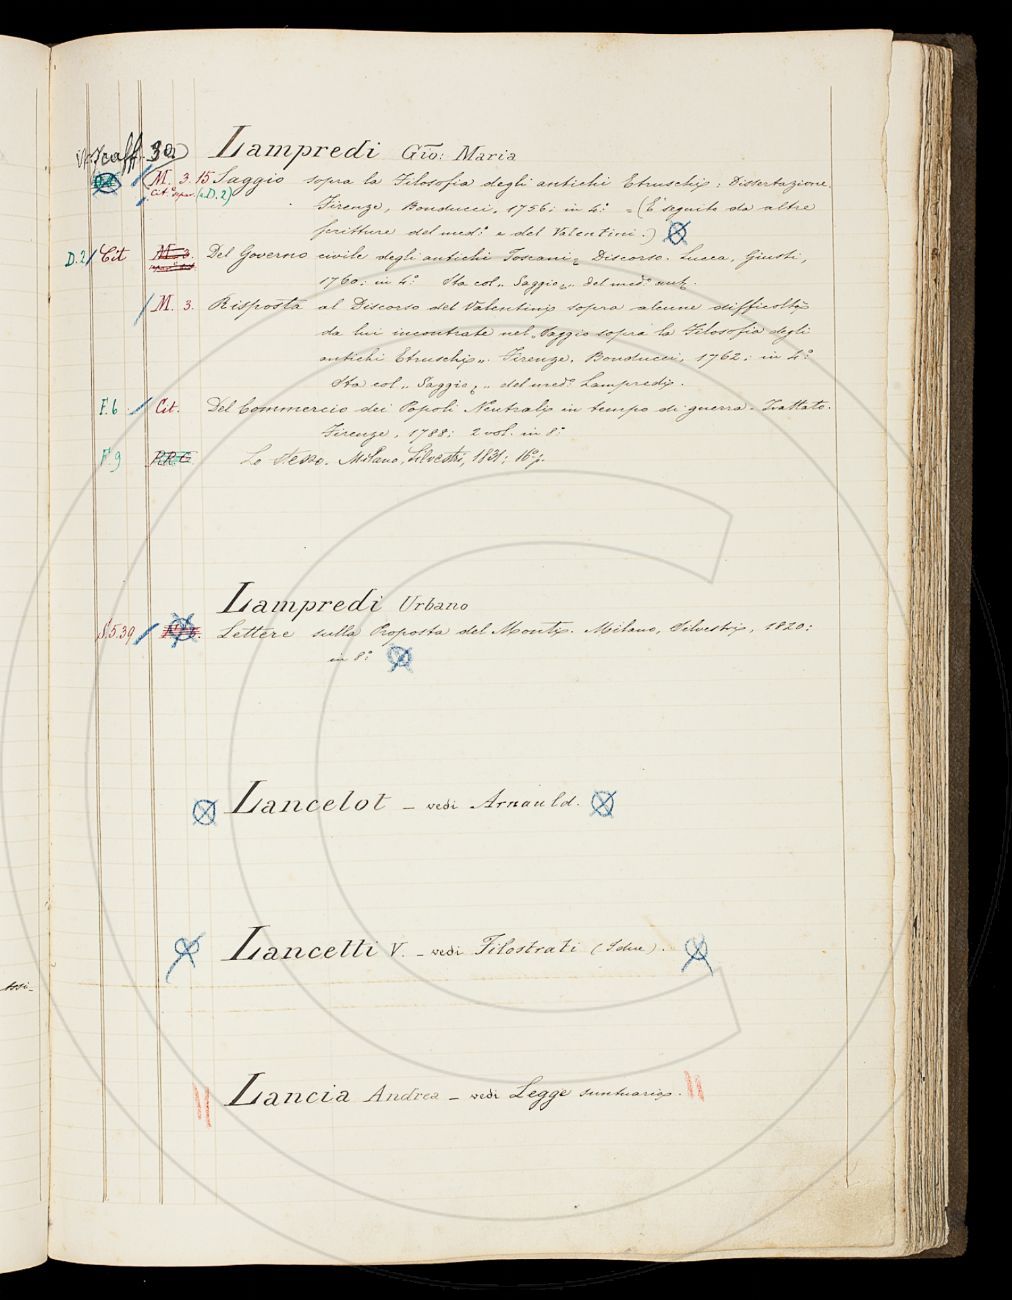 Scaff. 30 Lampredi Gio: Maria
M. 3. 15 Saggio sopra la Filosofia degli antichi Etruschi: Dissertazione.
Cit. (a D. 2)
Firenze, Bonducci, 1756; in 4.° = (È seguito da altre
scritture del med.° e del Valentini.)
D.2 Cit M. 3. Del Governo civile degli antichi Toscani; Discorso. Lucca, Giusti,
1760; in 4.° Sta col „Saggio„ del med.° aut.
M. 3. Risposta al Discorso del Valentini sopra alcune difficoltà
da lui incontrate nel „Saggio sopra la Filosofia degli
antichi Etruschi„. Firenze, Bonducci, 1762; in 4.°
Sta col „Saggio„ del med.° Lampredi.
F. 6 Cit. Del Commercio dei Popoli Neutrali in tempo di guerra. Trattato.
Firenze, 1788; 2 vol. in 8.°
F. 9 Lo stesso. Milano, Silvestri, 1831; 16.°
Lampredi Urbano
S.5.39 Lettere sulla Proposta del Monti. Milano, Silvestri, 1820;
in 8.°
Lancelot – vedi Arnauld.
Lancetti V. – vedi Filostrati
Lancia Andrea – vedi Legge suntuaria.